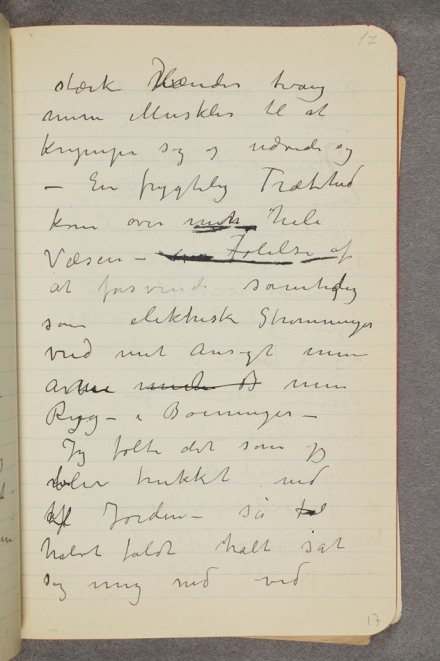 17
stærk Hænder tvang
mine Muskler til at
krympe sig og udvide sig
– En frygtelig Træthed
kom over mit hele
Væsen – Følelse af
at forsvinde samtidig
som elektriske Strømninger
vred mit Ansigt mine
arme B mine
Ryg – i Bølninger –
Jeg følte det som jeg
blev trukket ned
af Jorden – så
halvt faldt halt sat
jeg mig ned ved
17